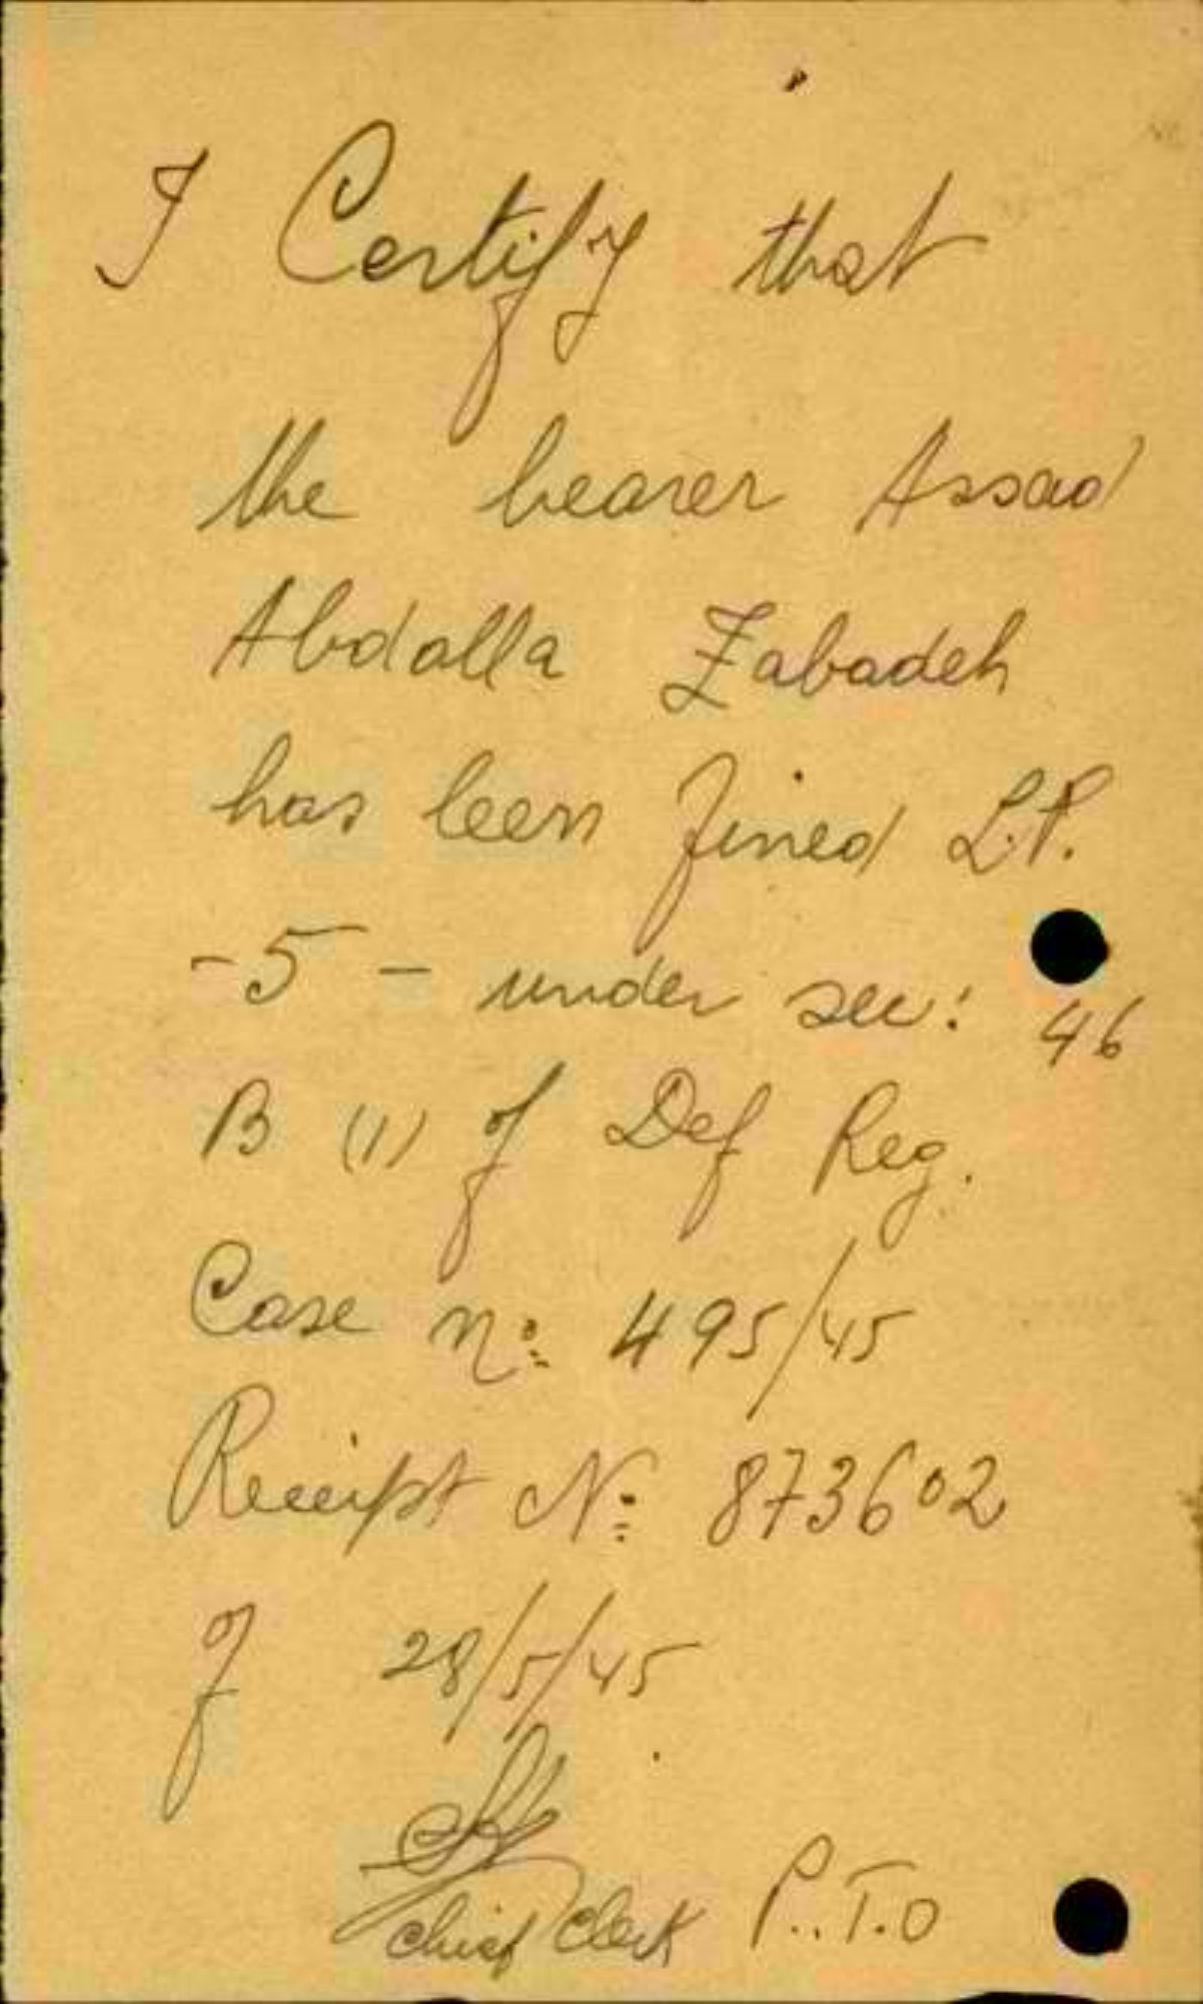 I Certify that
the bearer Assad
Abdalla Zabadeh
has been fined L.P.
-5- under sec: 46
B (1) of Def Reg.
Case no: 495/45
Receipt No: 873602
of 28/5/45
Chief Clerk P.T.O